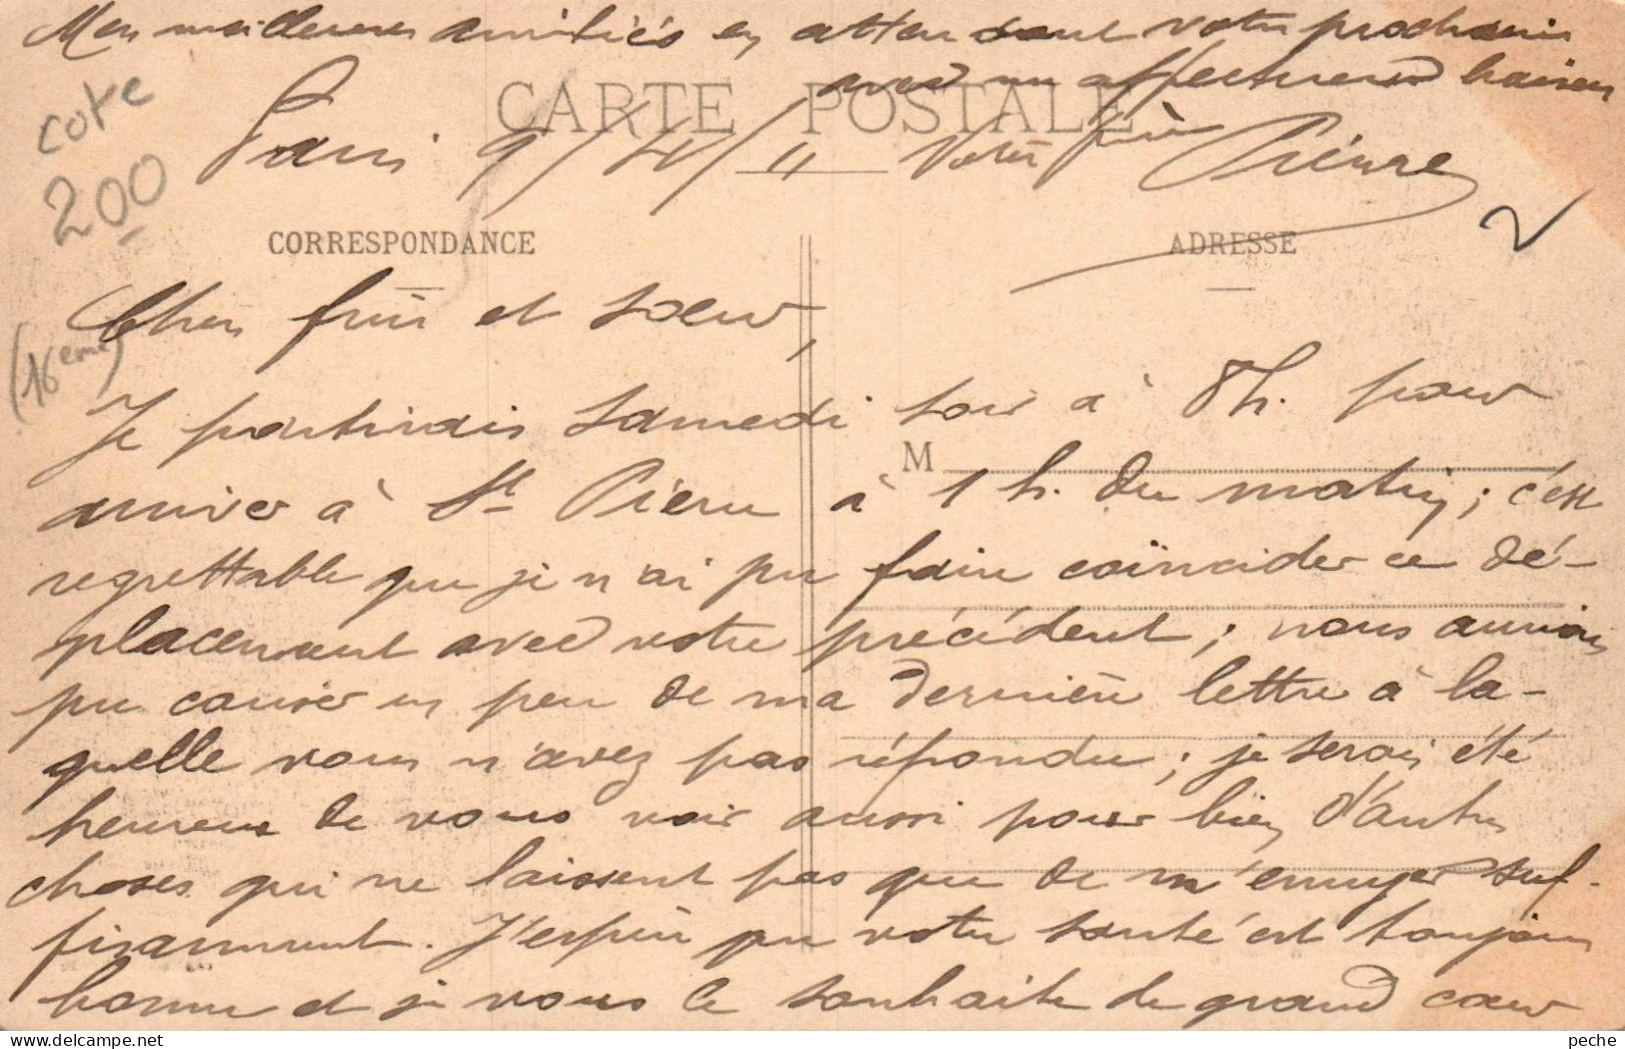 Mes meilleures amitiés en attendant votre prochain
avec un affectueux baiser
CARTE POSTALE
cote
200
Paris 9/4/11 Votre frère Pierre
CORRESPONDANCE
ADRESSE
(16eme)
Chers frère et soeur,
Je partirais samedi soir à 8h. pour
M
arriver à St Pierre à 1 h. du matin ; c'est
regrettable que je n'ai pu faire coïncider ce dé-
placement avec votre précédent ; nous aurions
pu causer un peu de ma dernière lettre à la-
quelle vous n'avez pas répondu ; je serais été
heureux de vous voir aussi pour bien d'autres
choses qui ne laissent pas que de m'ennuyer suf-
fisamment. J'espère que votre santé est toujours
bonne et je vous le souhaite de grand coeur
peche